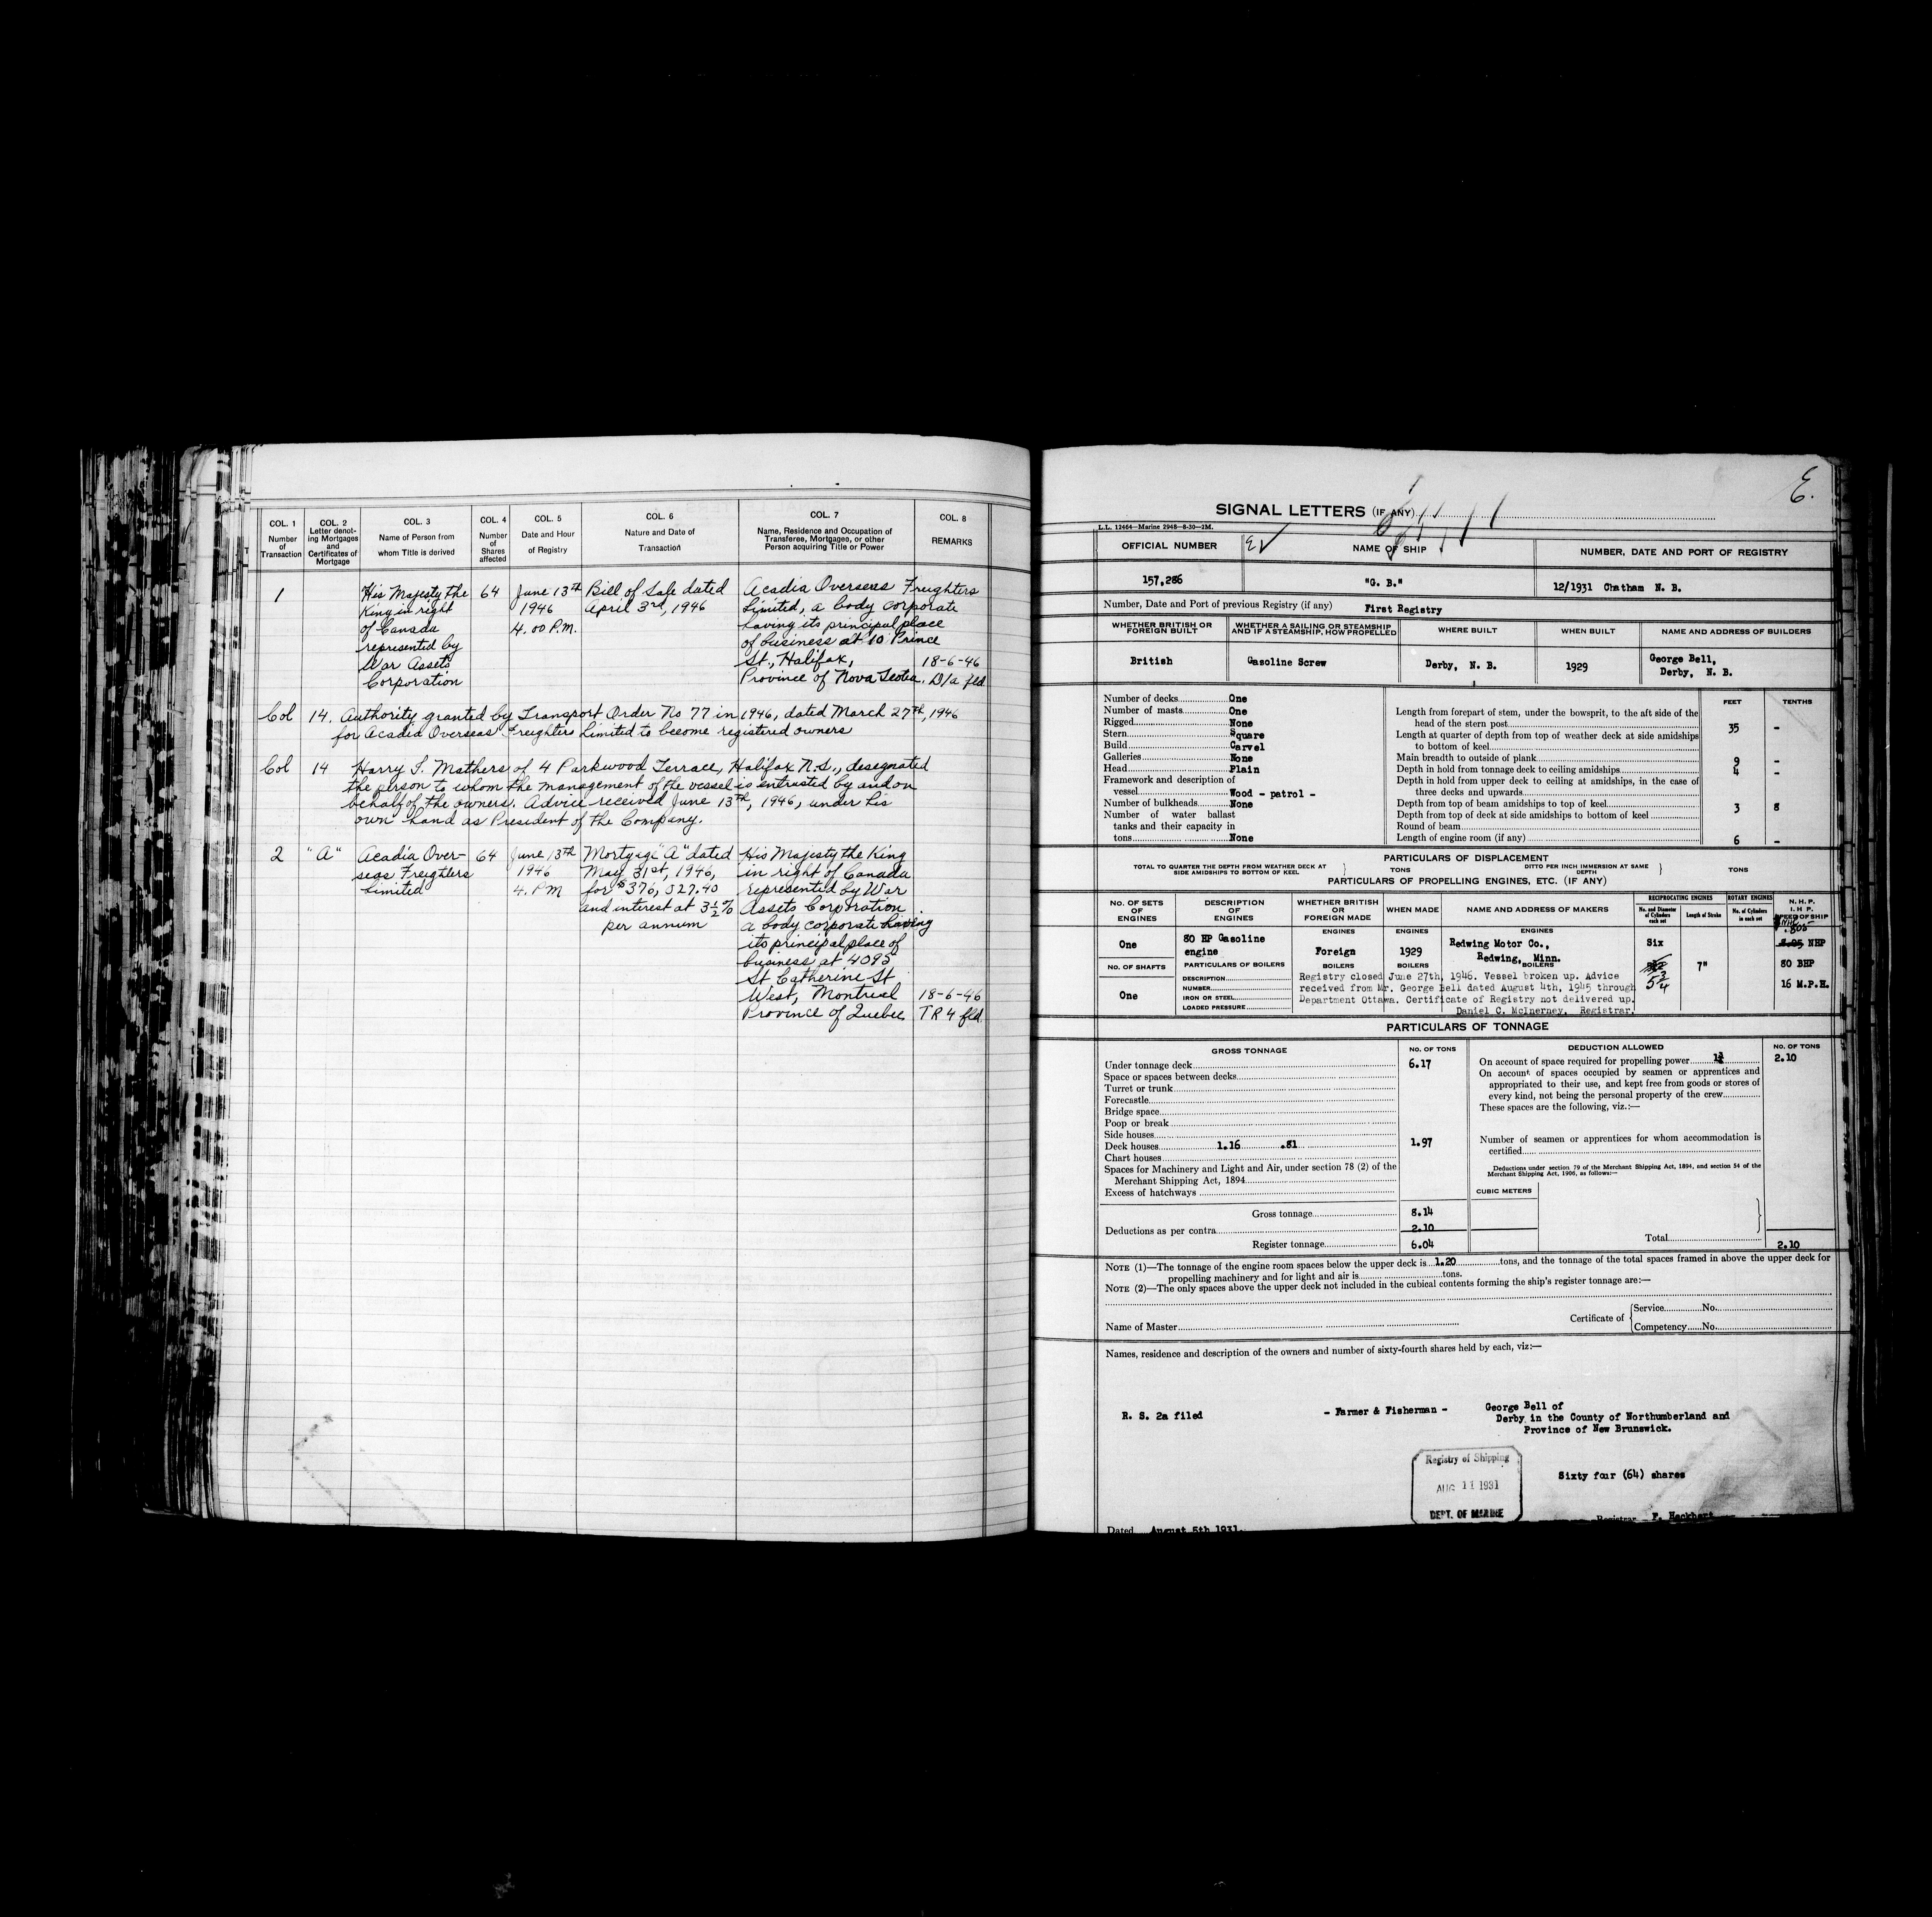 COL. 1 Number of Transaction
COL. 2 Letter denoting Mortgages and Certificates of Mortgage
COL. 3 Name of Person from whom Title is derived
COL. 4 Number of Shares affected
COL. 5 Date and Hour of Registry
COL. 6 Nature and Date of Transaction
COL. 7 Name, Residence and Occupation of Transferee, Mortgagee, or other Person acquiring Title or Power
COL. 8 REMARKS
1 His Majesty the 64 June 13th Bill of Sale dated Acadia Overseas Freighters
King in right 1946 April 3rd, 1946 Limited, a body corporate
of Canada 4.00 P.M. having its principal place
represented by of business at 10 Prince
War Assets St., Halifax, 18-6-46
Corporation Province of Nova Scotia. B/a fld
Col 14. Authority granted by Transport Order No 77 in 1946, dated March 27th, 1946
for Acadia Overseas Freighters Limited to become registered owners
Col 14 Harry I. Mathers of 4 Parkwood Terrace, Halifax N.S., designated
the person to whom the management of the vessel is entrusted by and on
behalf of the owners. Advice received June 13th, 1946, under his
own hand as President of the Company.
2 "A" Acadia Over- 64 June 13th Mortgage "A" dated His Majesty the King
seas Freighters 1946 May 31st, 1946, in right of Canada
Limited 4. PM for $376,527.40 represented by War
and interest at 3½% Assets Corporation
per annum a body corporate having
its principal place of
business at 4095
St Catherine St
West, Montreal 18-6-46
Province of Quebec TR 4 fld.
E.
SIGNAL LETTERS (IF ANY)
L.L. 12464—Marine 2948—8-30—2M.
OFFICIAL NUMBER NAME OF SHIP NUMBER, DATE AND PORT OF REGISTRY
157,286 "G. B." 12/1931 Chatham N. B.
Number, Date and Port of previous Registry (if any) First Registry
WHETHER BRITISH OR FOREIGN BUILT WHETHER A SAILING OR STEAMSHIP AND IF A STEAMSHIP, HOW PROPELLED WHERE BUILT WHEN BUILT NAME AND ADDRESS OF BUILDERS
British Gasoline Screw Derby, N. B. 1929 George Bell,
Derby, N. B.
FEET TENTHS
Number of decks One
Number of masts One
Rigged None
Stern Square
Build Carvel
Galleries None
Head Plain
Framework and description of
vessel Wood - patrol -
Number of bulkheads None
Number of water ballast
tanks and their capacity in
tons None
Length from forepart of stem, under the bowsprit, to the aft side of the
head of the stern post 35 -
Length at quarter of depth from top of weather deck at side amidships
to bottom of keel
Main breadth to outside of plank 9 -
Depth in hold from tonnage deck to ceiling amidships 4 -
Depth in hold from upper deck to ceiling at amidships, in the case of
three decks and upwards
Depth from top of beam amidships to top of keel 3 8
Depth from top of deck at side amidships to bottom of keel
Round of beam
Length of engine room (if any) 6 -
PARTICULARS OF DISPLACEMENT
TOTAL TO QUARTER THE DEPTH FROM WEATHER DECK AT SIDE AMIDSHIPS TO BOTTOM OF KEEL TONS DITTO PER INCH IMMERSION AT SAME DEPTH TONS
PARTICULARS OF PROPELLING ENGINES, ETC. (IF ANY)
NO. OF SETS OF ENGINES DESCRIPTION OF ENGINES WHETHER BRITISH OR FOREIGN MADE WHEN MADE NAME AND ADDRESS OF MAKERS RECIPROCATING ENGINES ROTARY ENGINES N. H. P. I. H P. SPEED OF SHIP
No. and Diameter of Cylinders each set Length of Stroke No. of Cylinders in each set
ENGINES ENGINES ENGINES
One 80 HP Gasoline Foreign 1929 Redwing Motor Co., Six NHP
engine Redwing, Minn. 5¾ 7" 80 BHP
16 M.P.H.
NO. OF SHAFTS PARTICULARS OF BOILERS BOILERS BOILERS BOILERS
One DESCRIPTION
NUMBER
IRON OR STEEL
LOADED PRESSURE
Registry closed June 27th, 1946. Vessel broken up. Advice
received from Mr. George Bell dated August 4th, 1945 through
Department Ottawa. Certificate of Registry not delivered up.
Daniel C. McInerney, Registrar.
PARTICULARS OF TONNAGE
GROSS TONNAGE NO. OF TONS DEDUCTION ALLOWED NO. OF TONS
Under tonnage deck 6.17
Space or spaces between decks
Turret or trunk
Forecastle
Bridge space
Poop or break
Side houses
Deck houses 1.16 .81 1.97
Chart houses
Spaces for Machinery and Light and Air, under section 78 (2) of the
Merchant Shipping Act, 1894
Excess of hatchways
Gross tonnage 8.14
Deductions as per contra 2.10
Register tonnage 6.04
On account of space required for propelling power 1¾ 2.10
On account of spaces occupied by seamen or apprentices and
appropriated to their use, and kept free from goods or stores of
every kind, not being the personal property of the crew
These spaces are the following, viz.:—
Number of seamen or apprentices for whom accommodation is
certified
Deductions under section 79 of the Merchant Shipping Act, 1894, and section 54 of the
Merchant Shipping Act, 1906, as follows:—
CUBIC METERS
Total 2.10
NOTE (1)—The tonnage of the engine room spaces below the upper deck is 1.20 tons, and the tonnage of the total spaces framed in above the upper deck for
propelling machinery and for light and air is tons.
NOTE (2)—The only spaces above the upper deck not included in the cubical contents forming the ship's register tonnage are:—
Name of Master Certificate of Service No.
Competency No.
Names, residence and description of the owners and number of sixty-fourth shares held by each, viz:—
R. S. 2a filed - Farmer & Fisherman - George Bell of
Derby in the County of Northumberland and
Province of New Brunswick.
Sixty four (64) shares
Registry of Shipping
AUG 11 1931
DEPT. OF MARINE
Dated August 5th 1931. Registrar F. Heckbert